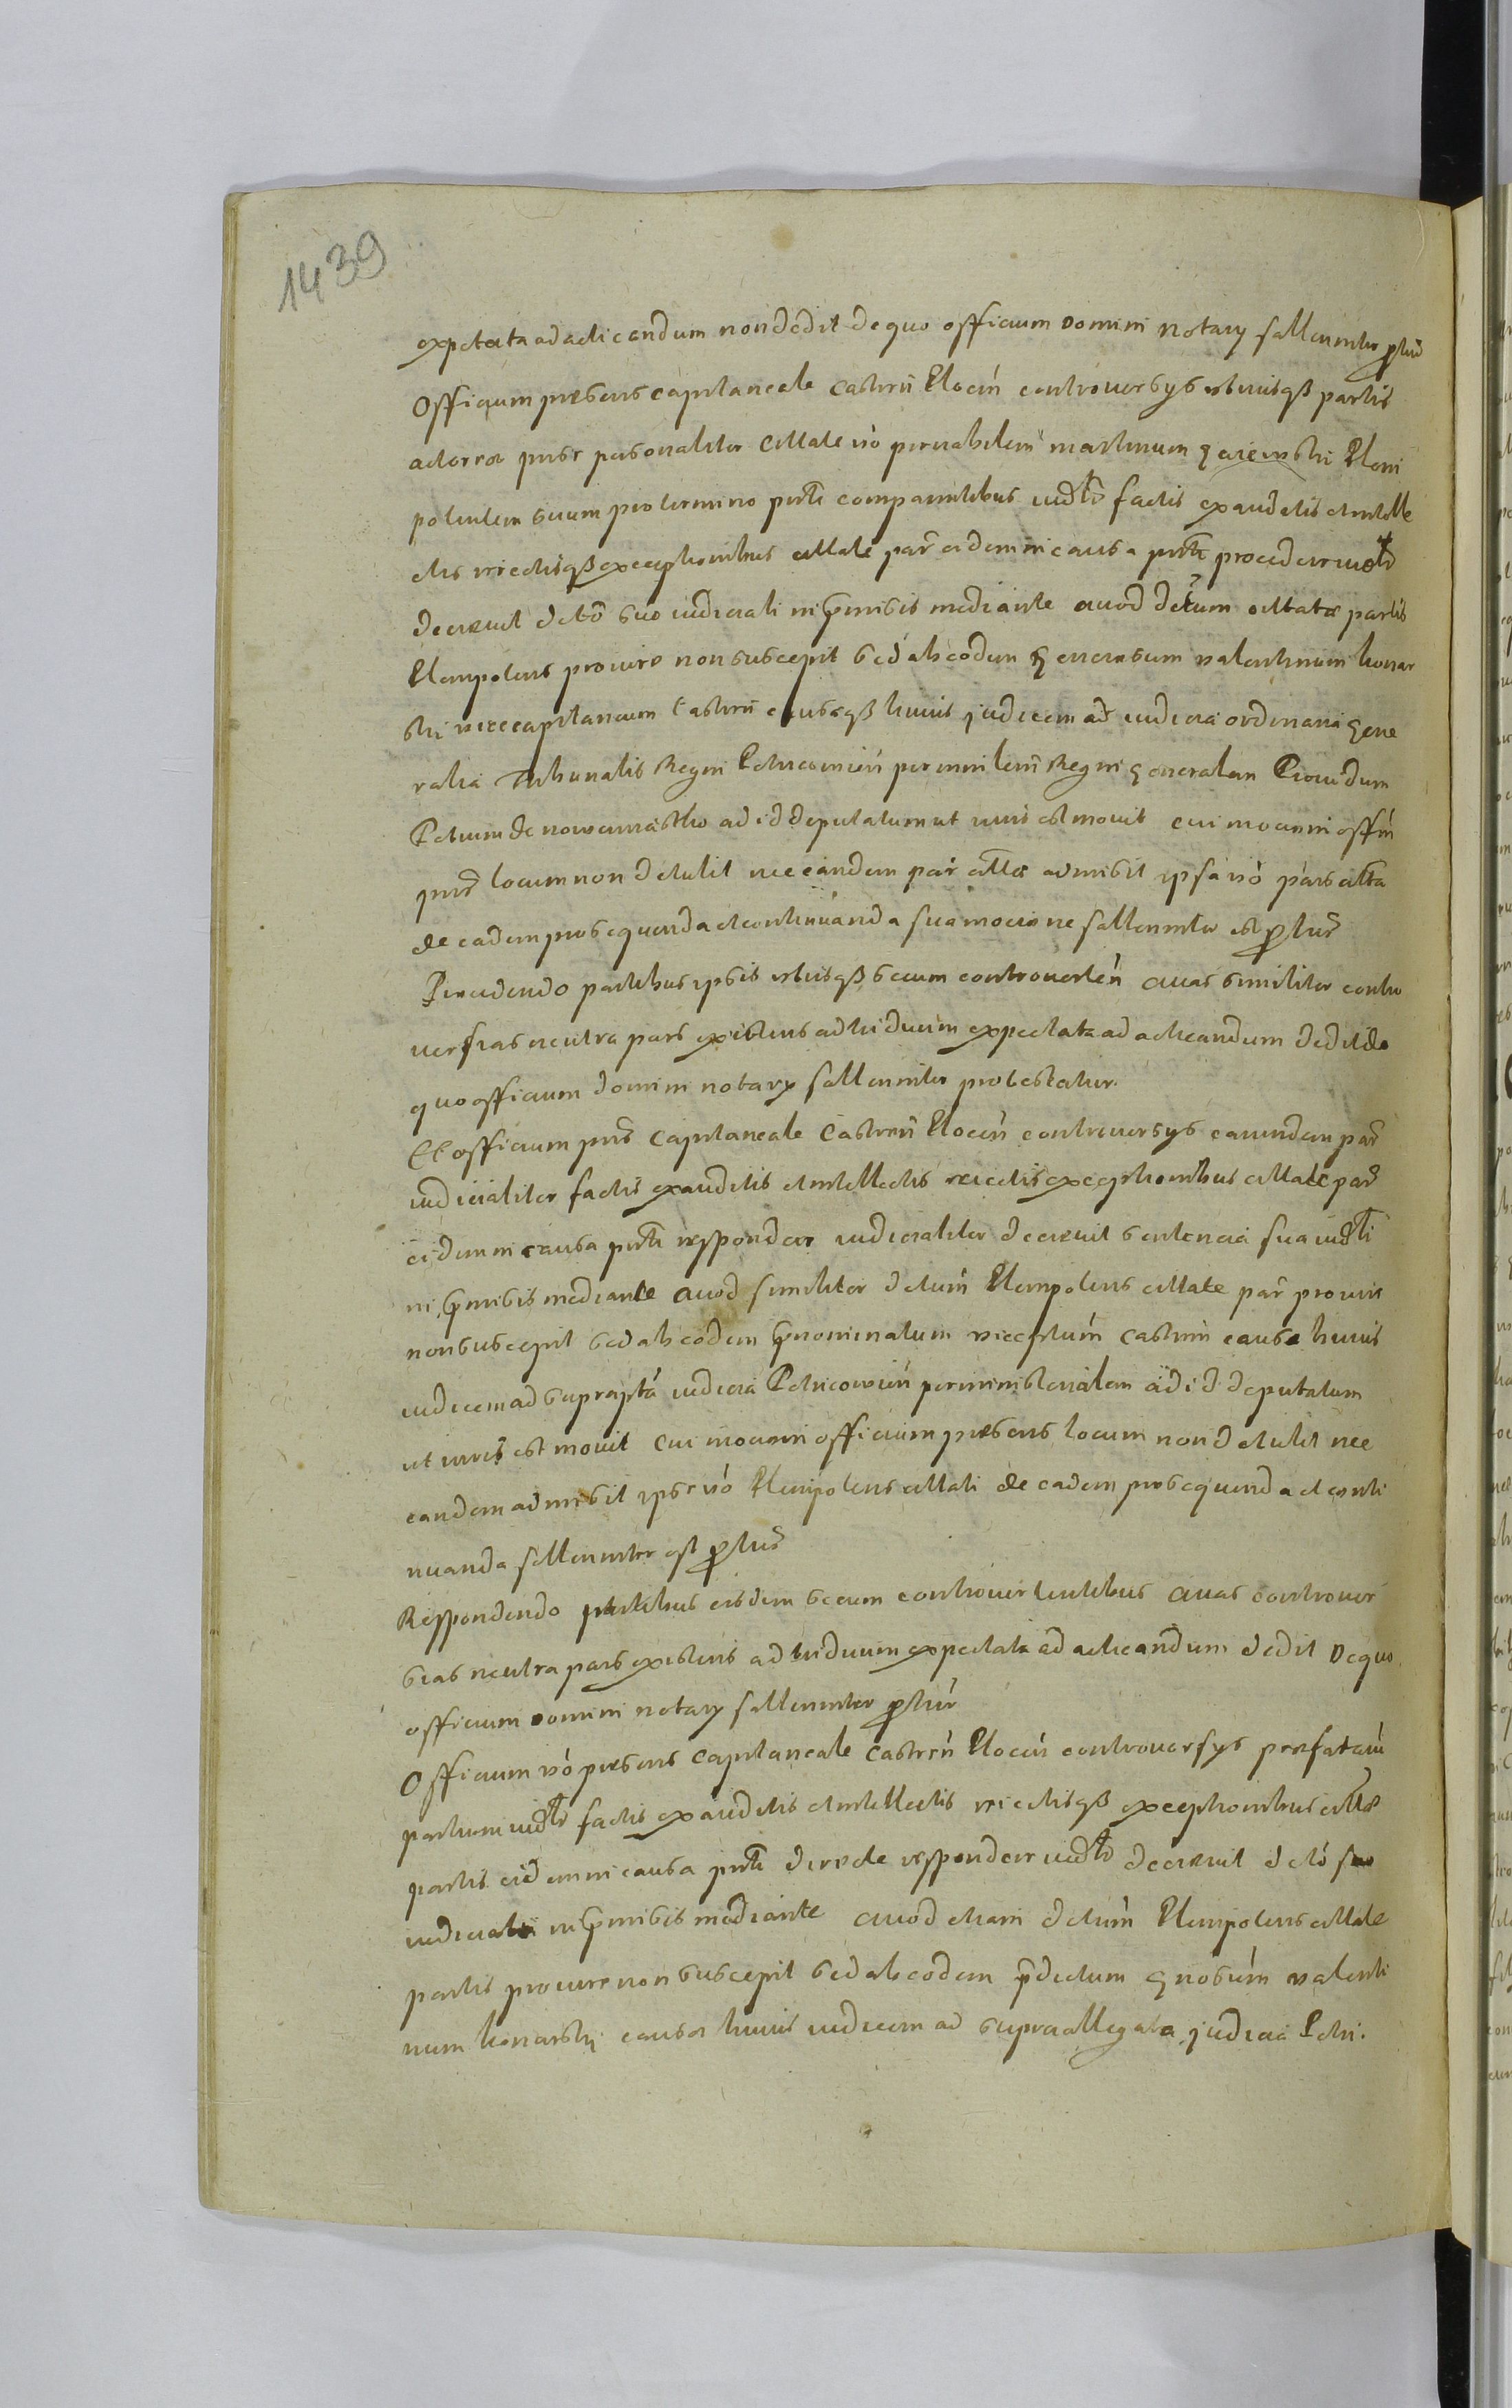 1439
expectata ad adicandum non dedit de quo officium domini notarÿ sollenniter ptur
Officium præsens capitaneale castren Plocen controversÿs utriusqß partis
actorea ipsæ personaliter Cittatæ vo per nobilem martinum Pleni
potentem suum pro termino pnti comparentibus iudlr factis exauditis et intelle
ctis reiectisqß exceptionibus cittatæ par eidem in causa pnti procedere iudlr
decrevit dcto suo iudiciali in præmissis mediante Quod dctum cittatæ partis
Plenipotens pro iure non suscepit sed ab eodem Generosum valentinum konar
ski vicecapitaneum castren causæqß huius judicem ad iudicia ordinaria gene
ralia Tribunalis Regni Petricovien per minlem Regni generalem Providum
Petrum de ad id deputatum ut iuris est movit cui motioni offin
pns locum non detulit nec eandem par attæ admisit ipsa vo pars citta
de eadem prosequenda et continuanda sua motione sollenniter est ptur
Procedendo partibus ipsis utrisqß secum controverten Quas similiter contro
versias neutra pars existens ad triduum expectata ad acticandum dedit de
quo officium domini notarÿ sollenniter protestatur.
Et officium pns Capitaneale Castren Plocen controversÿs earundem par
iudicialiter factis exauditis et intellectis reiectis exceptionibus cittatæ par
eidem in causa pnti respondere iudicialiter decrevit sententia sua iudli
in præmissis mediante Quod similiter dctum Plenipotens cittatæ par pro iure
non suscepit sed ab eodem prænominatum viceptum castren causæ huius
iudicem ad supraptá iudicia Petricovien per ministerialem ad id deputatum
ut iuris est movit Cui motioni officium præsens locum non detulit nec
eandem admisit ipse vo Plenipotens cittati de eadem prosequenda et conti
nuanda sollenniter est ptur
Respondendo partibus eisdem secum controvertentibus Quas controver
sias neutra pars existens ad triduum expectata ad acticandum dedit De quo
officium domini notarÿ sollenniter ptur
Officium vo præsens Capitaneale Castren Plocen controversÿs præfatarum
partium iudlr factis exauditis et intellectis reiectisqß exceptionibus cittæ
partis eidem in causa pnti directe respondere iudlr decrevit dcto suo
iudiciali in præmissis mediante Quod etiam dctum Plenipotens cittatæ
partis pro iure non suscepit sed ab eodem pdictum gnosum valenti
num konarski causæ huius iudicem ad supraallegata judicia Petri.